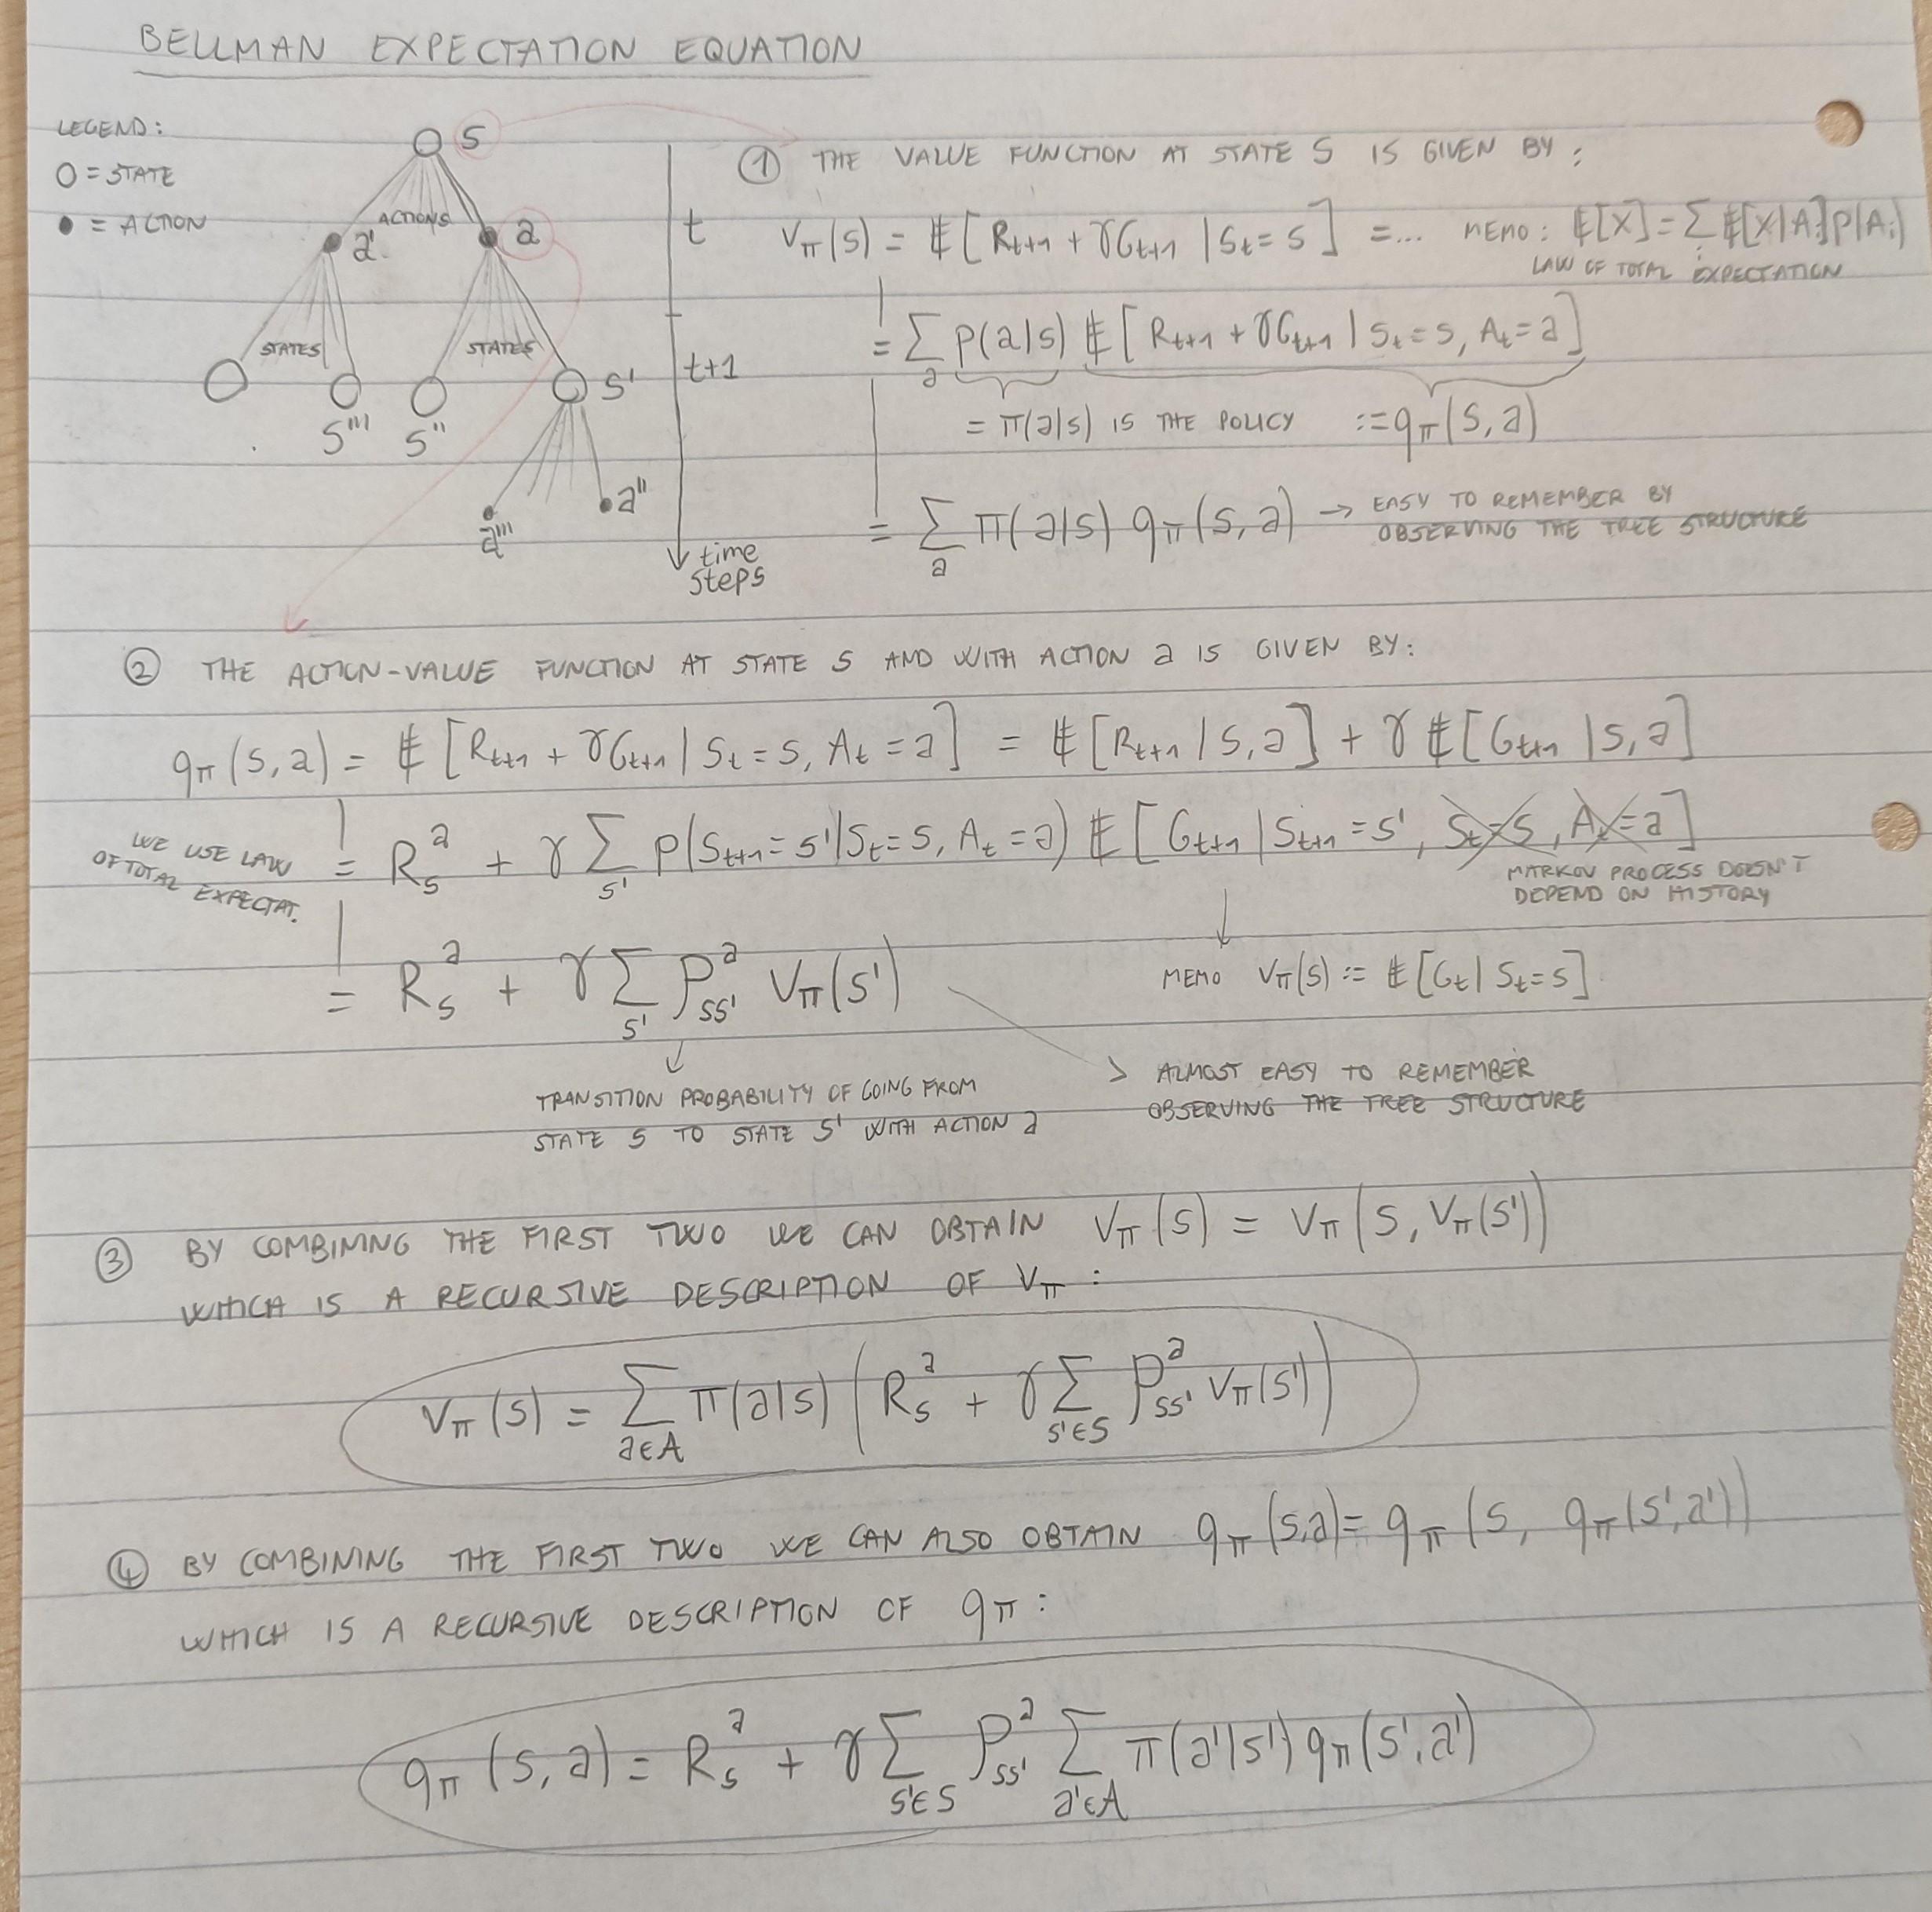 BELLMAN EXPECTATION EQUATION
LEGEND:
O = STATE
● = ACTION
S
ACTIONS
a'
a
STATES
STATES
S'''
S''
S'
a'''
a''
t
t+1
time
steps
① THE VALUE FUNCTION AT STATE S IS GIVEN BY:
V_π(s) = E[R_{t+1} + γG_{t+1} | S_t = s] = ... MEMO: E[X] = Σ_i E[X|A_i]P(A_i)
LAW OF TOTAL EXPECTATION
= Σ_a p(a|s) E[R_{t+1} + γG_{t+1} | S_t = s, A_t = a]
= π(a|s) IS THE POLICY := q_π(s, a)
= Σ_a π(a|s) q_π(s, a) → EASY TO REMEMBER BY
OBSERVING THE TREE STRUCTURE
② THE ACTION-VALUE FUNCTION AT STATE S AND WITH ACTION a IS GIVEN BY:
q_π(s, a) = E[R_{t+1} + γG_{t+1} | S_t = s, A_t = a] = E[R_{t+1} | s, a] + γ E[G_{t+1} | s, a]
WE USE LAW
OF TOTAL EXPECTAT.
= R_s^a + γ Σ_{s'} p(S_{t+1} = s' | S_t = s, A_t = a) E[G_{t+1} | S_{t+1} = s', S_t = s, A_t = a]
MARKOV PROCESS DOESN'T
DEPEND ON HISTORY
= R_s^a + γ Σ_{s'} P_{ss'}^a V_π(s')
MEMO V_π(s) := E[G_t | S_t = s]
TRANSITION PROBABILITY OF GOING FROM
STATE S TO STATE S' WITH ACTION a
> ALMOST EASY TO REMEMBER
OBSERVING THE TREE STRUCTURE
③ BY COMBINING THE FIRST TWO WE CAN OBTAIN V_π(s) = V_π(s, V_π(s'))
WHICH IS A RECURSIVE DESCRIPTION OF V_π:
V_π(s) = Σ_{a∈A} π(a|s) (R_s^a + γ Σ_{s'∈S} P_{ss'}^a V_π(s'))
④ BY COMBINING THE FIRST TWO WE CAN ALSO OBTAIN q_π(s,a) = q_π(s, q_π(s',a'))
WHICH IS A RECURSIVE DESCRIPTION OF q_π:
q_π(s, a) = R_s^a + γ Σ_{s'∈S} P_{ss'}^a Σ_{a'∈A} π(a'|s') q_π(s',a')